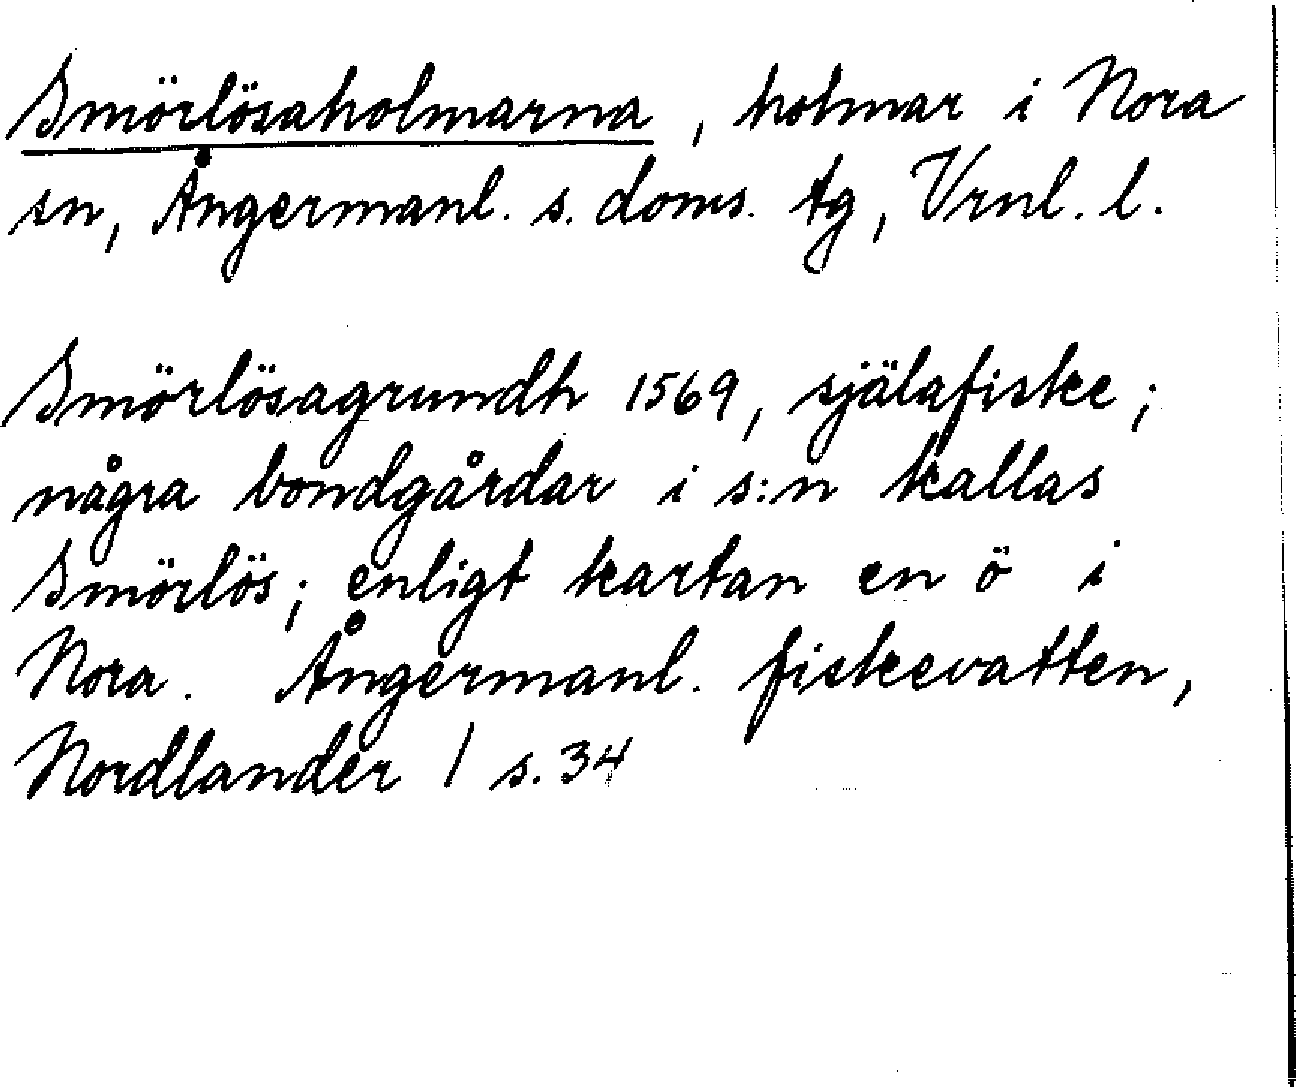 Smörlösaholmarna, holmar i Nora
sn, Ångermanl. s. doms. tg, Vrnl. l.
Smörlösagrundh 1569, själafiske;
några bondgårdar i s:n kallas
Smörlös; enligt kartan en ö i
Nora. Ångermanl. fiskevatten,
Nordlander / s. 34